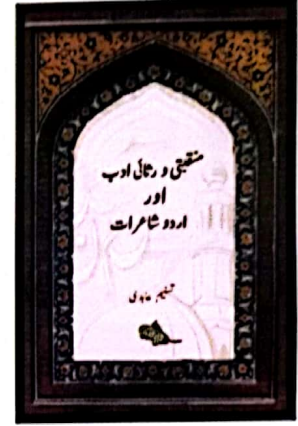 منقبتی و رثائی ادب
اور
اردو شاعرات
تسنیم عابدی